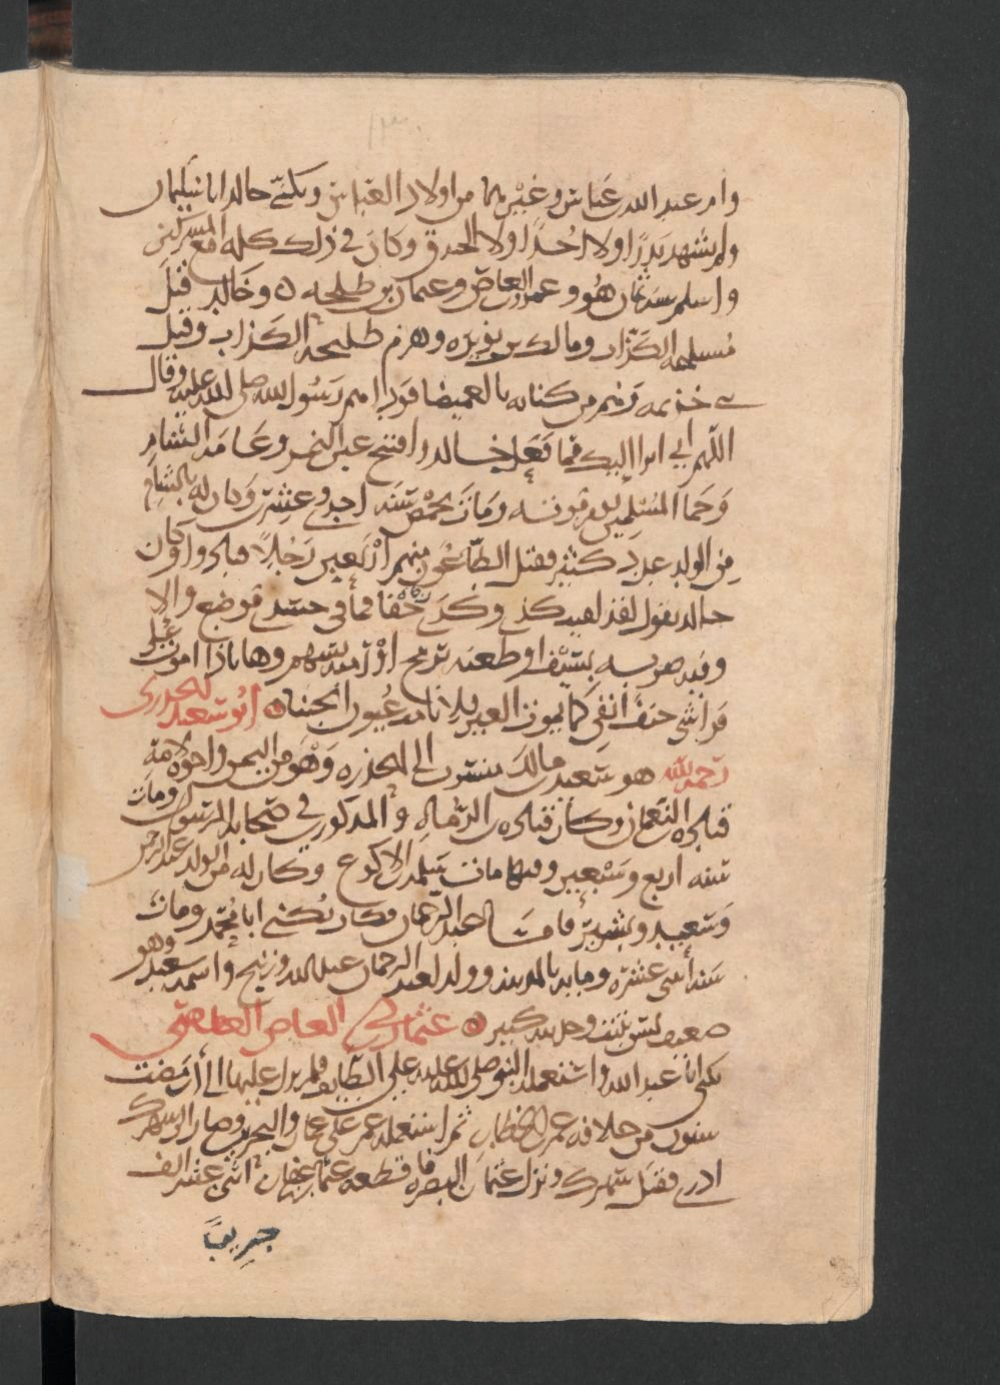 وام عبد الله بن عباس وغيرهما من اولاد العباس ويكنى خالد ابا سليمان
ولم يشهد بدرا ولا احدا ولا الخندق وكان في ذلك كله مع المشركين
واسلم سنة ثمان هو وعمرو بن العاص وعثمان بن طلحة ٥ وخالد قتل
مسيلمة الكذاب ومالك بن نويرة وهزم طليحة الكذاب وقتل
بني خذيمة وهم من كنانة بالغميصا فوداهم رسول الله صلى الله عليه وقال
اللهم اني ابرا اليك مما فعل خالد وافتتح عين التمر وعامة الشام
وحما المسلمين يوم موتة ومات بحمص سنة احدى وعشرين وكان له بالشام
من الولد عدد كثير فقتل الطاعون منهم اربعين رجلا فبادوا وكان
خالد يقول لقد لقيت كذى وكذى زحفا فما في جسدي موضع والا
وفيه ضربة بسيف او طعنة برمح او رمية بسهم وهاناذا اموت على
فراشي حتف انفي كما يموت العير فلا نامت عيون الجبناء ٥ ابو سعيد الخدري
رحمه الله هو سعد بن مالك منسوب الى الخدرة وهو من اليمن واخوه لامه
قتادة بن النعمان وكان قتادة من الرماة والمذكورين في صحابة الرسول ومات
سنة اربع وسبعين وفيها مات سلمة بن الاكوع وكان له من الولد عبد الرحمن
وسعيد وبشير فاما عبد الرحمان فكان يكنى ابا محمد ومات
سنة اثنتي عشرة وماية بالمدينة وولد لعبد الرحمان عبد الله وربيح واسمه سعيد وهو
ضعيف ليس بثبت وحديثه كبير ٥ عثمان بن ابي العاص الثقفي
يكنى ابا عبد الله واستعمله النبي صلى الله عليه على الطايف فلم يزل عليها الى ان مضت
سنون من خلافة عمر بن الخطاب ثم استعمله عمر على عمان والبحرين وصار الى شهرك
فقتل شهرك ونزل عثمان البصرة فاقطعه عثمان بن عفان اثني عشر الف
جريبا